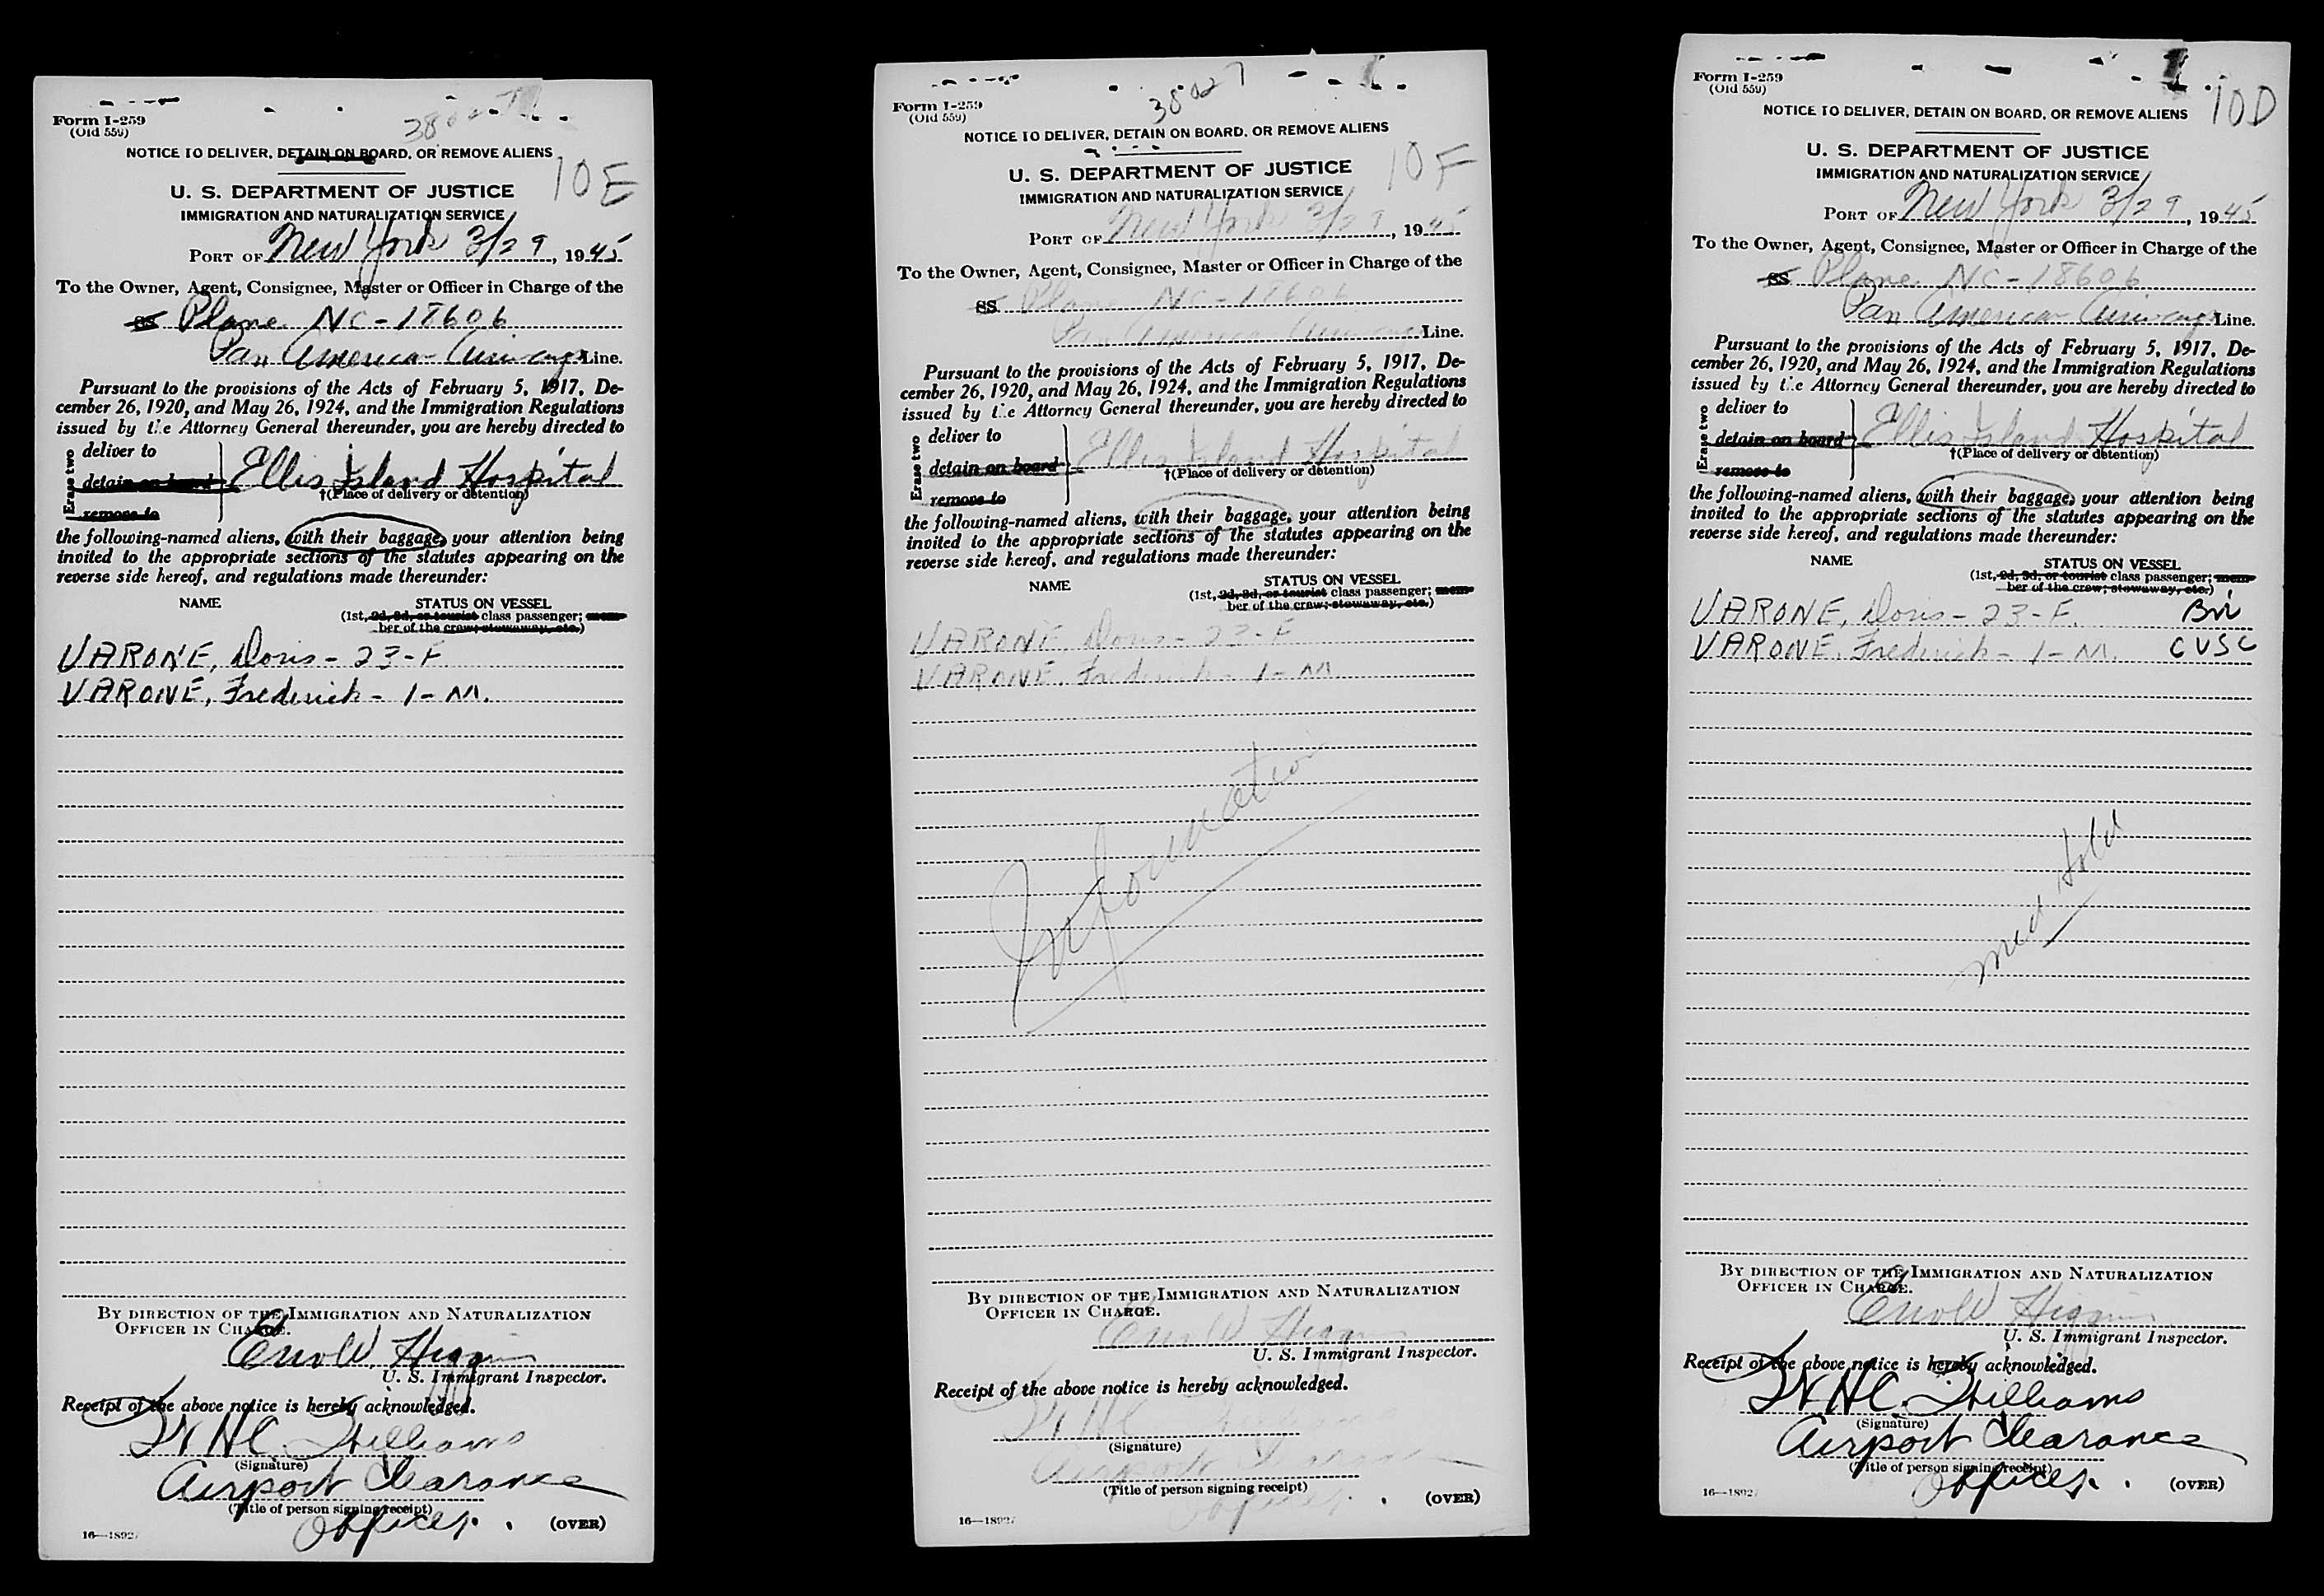 Form I-259
(Old 559)
NOTICE TO DELIVER, DETAIN ON BOARD, OR REMOVE ALIENS
10E
U. S. DEPARTMENT OF JUSTICE
IMMIGRATION AND NATURALIZATION SERVICE
PORT OF New York 3/29, 1945
To the Owner, Agent, Consignee, Master or Officer in Charge of the
SS. Plane NC-18606
Pan American Airways Line.
Pursuant to the provisions of the Acts of February 5, 1917, De-
cember 26, 1920, and May 26, 1924, and the Immigration Regulations
issued by the Attorney General thereunder, you are hereby directed to
Erase two
deliver to
detain on board
remove to
Ellis Island Hospital
†(Place of delivery or detention)
the following-named aliens, with their baggage, your attention being
invited to the appropriate sections of the statutes appearing on the
reverse side hereof, and regulations made thereunder:
NAME STATUS ON VESSEL
(1st, 2d, 3d, or tourist class passenger; mem-
ber of the crew; stowaway, etc.)
VARONE, Doris - 23-F
VARONE, Frederick - 1-M.
BY DIRECTION OF THE IMMIGRATION AND NATURALIZATION
OFFICER IN CHARGE.
Higgins
U. S. Immigrant Inspector.
Receipt of the above notice is hereby acknowledged.
Williams
(Signature)
Airport Clearance
(Title of person signing receipt)
Officer.
(OVER)
16—18927
Form I-259
(Old 559)
38027
NOTICE TO DELIVER, DETAIN ON BOARD, OR REMOVE ALIENS
10F
U. S. DEPARTMENT OF JUSTICE
IMMIGRATION AND NATURALIZATION SERVICE
PORT OF New York 3/29, 1945
To the Owner, Agent, Consignee, Master or Officer in Charge of the
SS. Plane NC-18606
Pan American Airways Line.
Pursuant to the provisions of the Acts of February 5, 1917, De-
cember 26, 1920, and May 26, 1924, and the Immigration Regulations
issued by the Attorney General thereunder, you are hereby directed to
Erase two
deliver to
detain on board
remove to
Ellis Island Hospital
†(Place of delivery or detention)
the following-named aliens, with their baggage, your attention being
invited to the appropriate sections of the statutes appearing on the
reverse side hereof, and regulations made thereunder:
NAME STATUS ON VESSEL
(1st, 2d, 3d, or tourist class passenger; mem-
ber of the crew; stowaway, etc.)
VARONE, Doris - 23-F
VARONE, Frederick - 1-M.
Information
BY DIRECTION OF THE IMMIGRATION AND NATURALIZATION
OFFICER IN CHARGE.
Higgins
U. S. Immigrant Inspector.
Receipt of the above notice is hereby acknowledged.
Williams
(Signature)
Airport Clearance
(Title of person signing receipt)
Officer.
(OVER)
16—18927
Form I-259
(Old 559)
10D
NOTICE TO DELIVER, DETAIN ON BOARD, OR REMOVE ALIENS
U. S. DEPARTMENT OF JUSTICE
IMMIGRATION AND NATURALIZATION SERVICE
PORT OF New York 3/29, 1945
To the Owner, Agent, Consignee, Master or Officer in Charge of the
SS. Plane NC-18606
Pan American Airways Line.
Pursuant to the provisions of the Acts of February 5, 1917, De-
cember 26, 1920, and May 26, 1924, and the Immigration Regulations
issued by the Attorney General thereunder, you are hereby directed to
Erase two
deliver to
detain on board
remove to
Ellis Island Hospital
†(Place of delivery or detention)
the following-named aliens, with their baggage, your attention being
invited to the appropriate sections of the statutes appearing on the
reverse side hereof, and regulations made thereunder:
NAME STATUS ON VESSEL
(1st, 2d, 3d, or tourist class passenger; mem-
ber of the crew; stowaway, etc.)
VARONE, Doris - 23-F.
VARONE, Frederick - 1-M. CUSC
Med Hold
BY DIRECTION OF THE IMMIGRATION AND NATURALIZATION
OFFICER IN CHARGE.
Higgins
U. S. Immigrant Inspector.
Receipt of the above notice is hereby acknowledged.
Williams
(Signature)
Airport Clearance
(Title of person signing receipt)
Officer.
(OVER)
16—18927